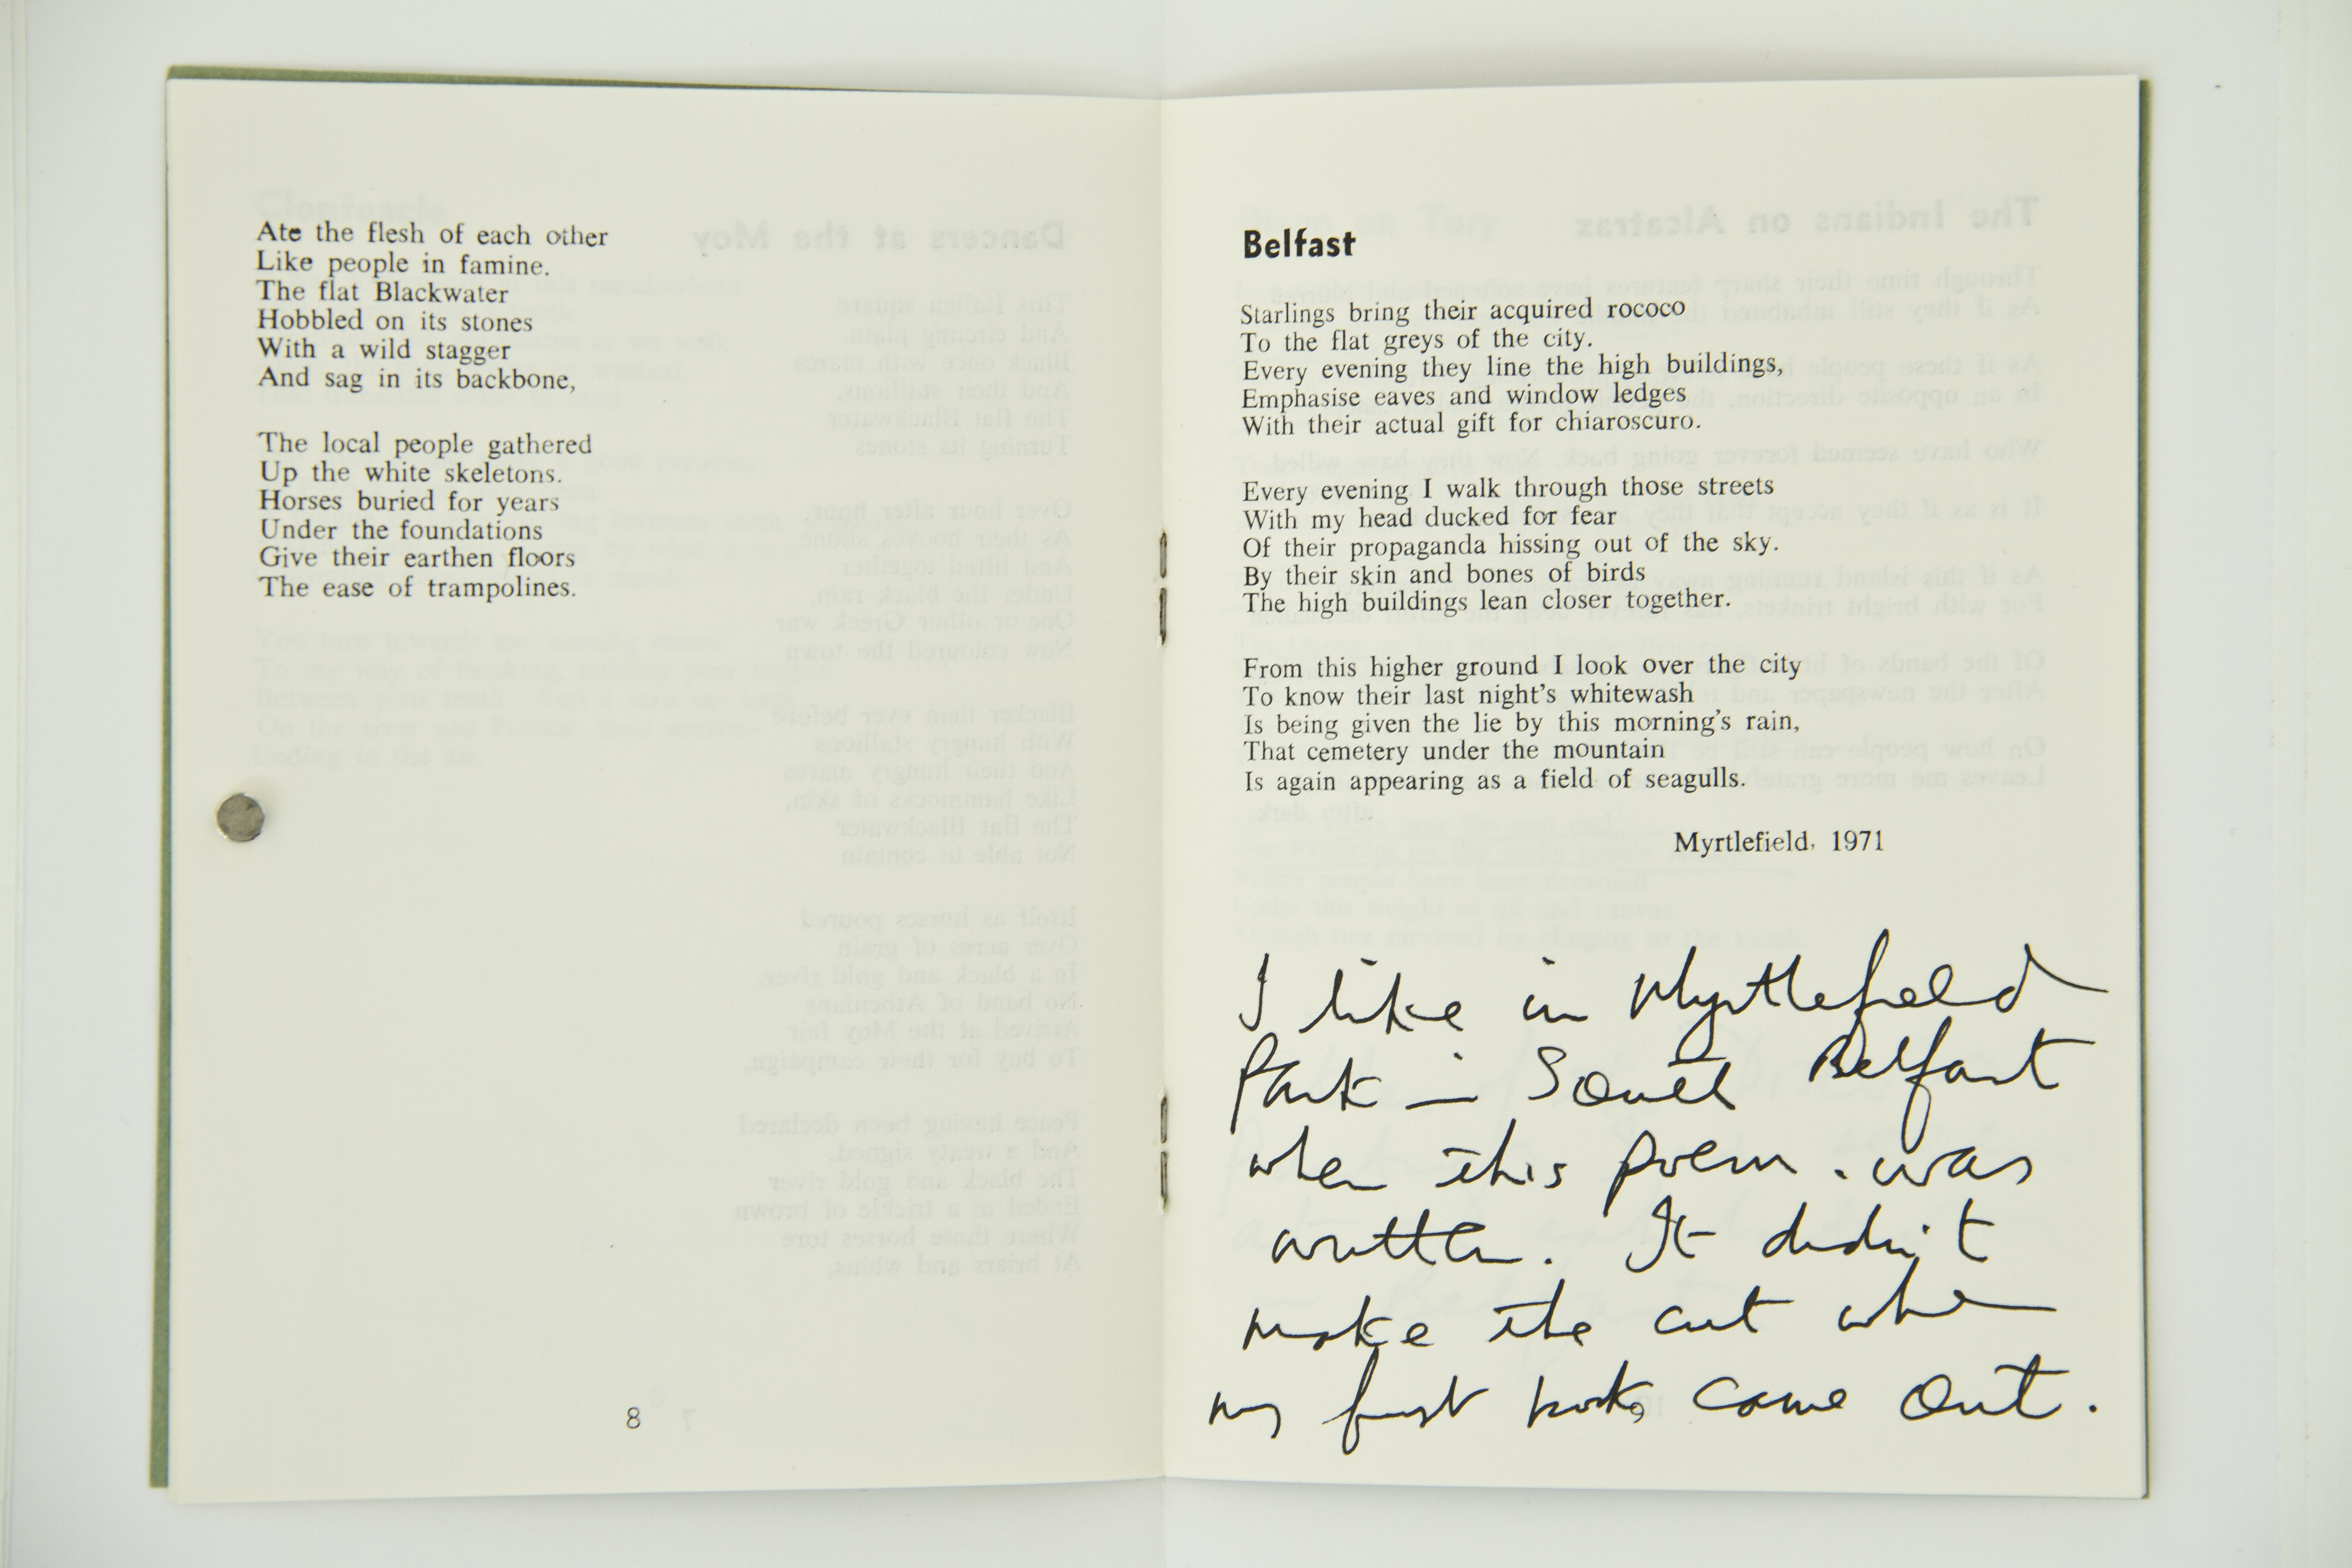 Ate the flesh of each other
Like people in famine.
The flat Blackwater
Hobbled on its stones
With a wild stagger
And sag in its backbone,
The local people gathered
Up the white skeletons.
Horses buried for years
Under the foundations
Give their earthen floors
The ease of trampolines.
8
Belfast
Starlings bring their acquired rococo
To the flat greys of the city.
Every evening they line the high buildings,
Emphasise eaves and window ledges
With their actual gift for chiaroscuro.
Every evening I walk through those streets
With my head ducked for fear
Of their propaganda hissing out of the sky.
By their skin and bones of birds
The high buildings lean closer together.
From this higher ground I look over the city
To know their last night's whitewash
Is being given the lie by this morning's rain,
That cemetery under the mountain
Is again appearing as a field of seagulls.
Myrtlefield, 1971
I like in Myrtlefield
Park in South Belfast
when this poem was
written. It didn't
make the cut when
my first book came out.